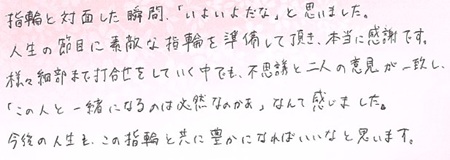 指輪と対面した瞬間、「いよいよだな」と思いました。
人生の節目に素敵な指輪を準備して頂き、本当に感謝です。
様々細部まで打合せをしていく中でも、不思議と二人の意見が一致し、
「この人と一緒になるのは必然なのかぁ」なんて感じました。
今後の人生も、この指輪と共に豊かになればいいなと思います。